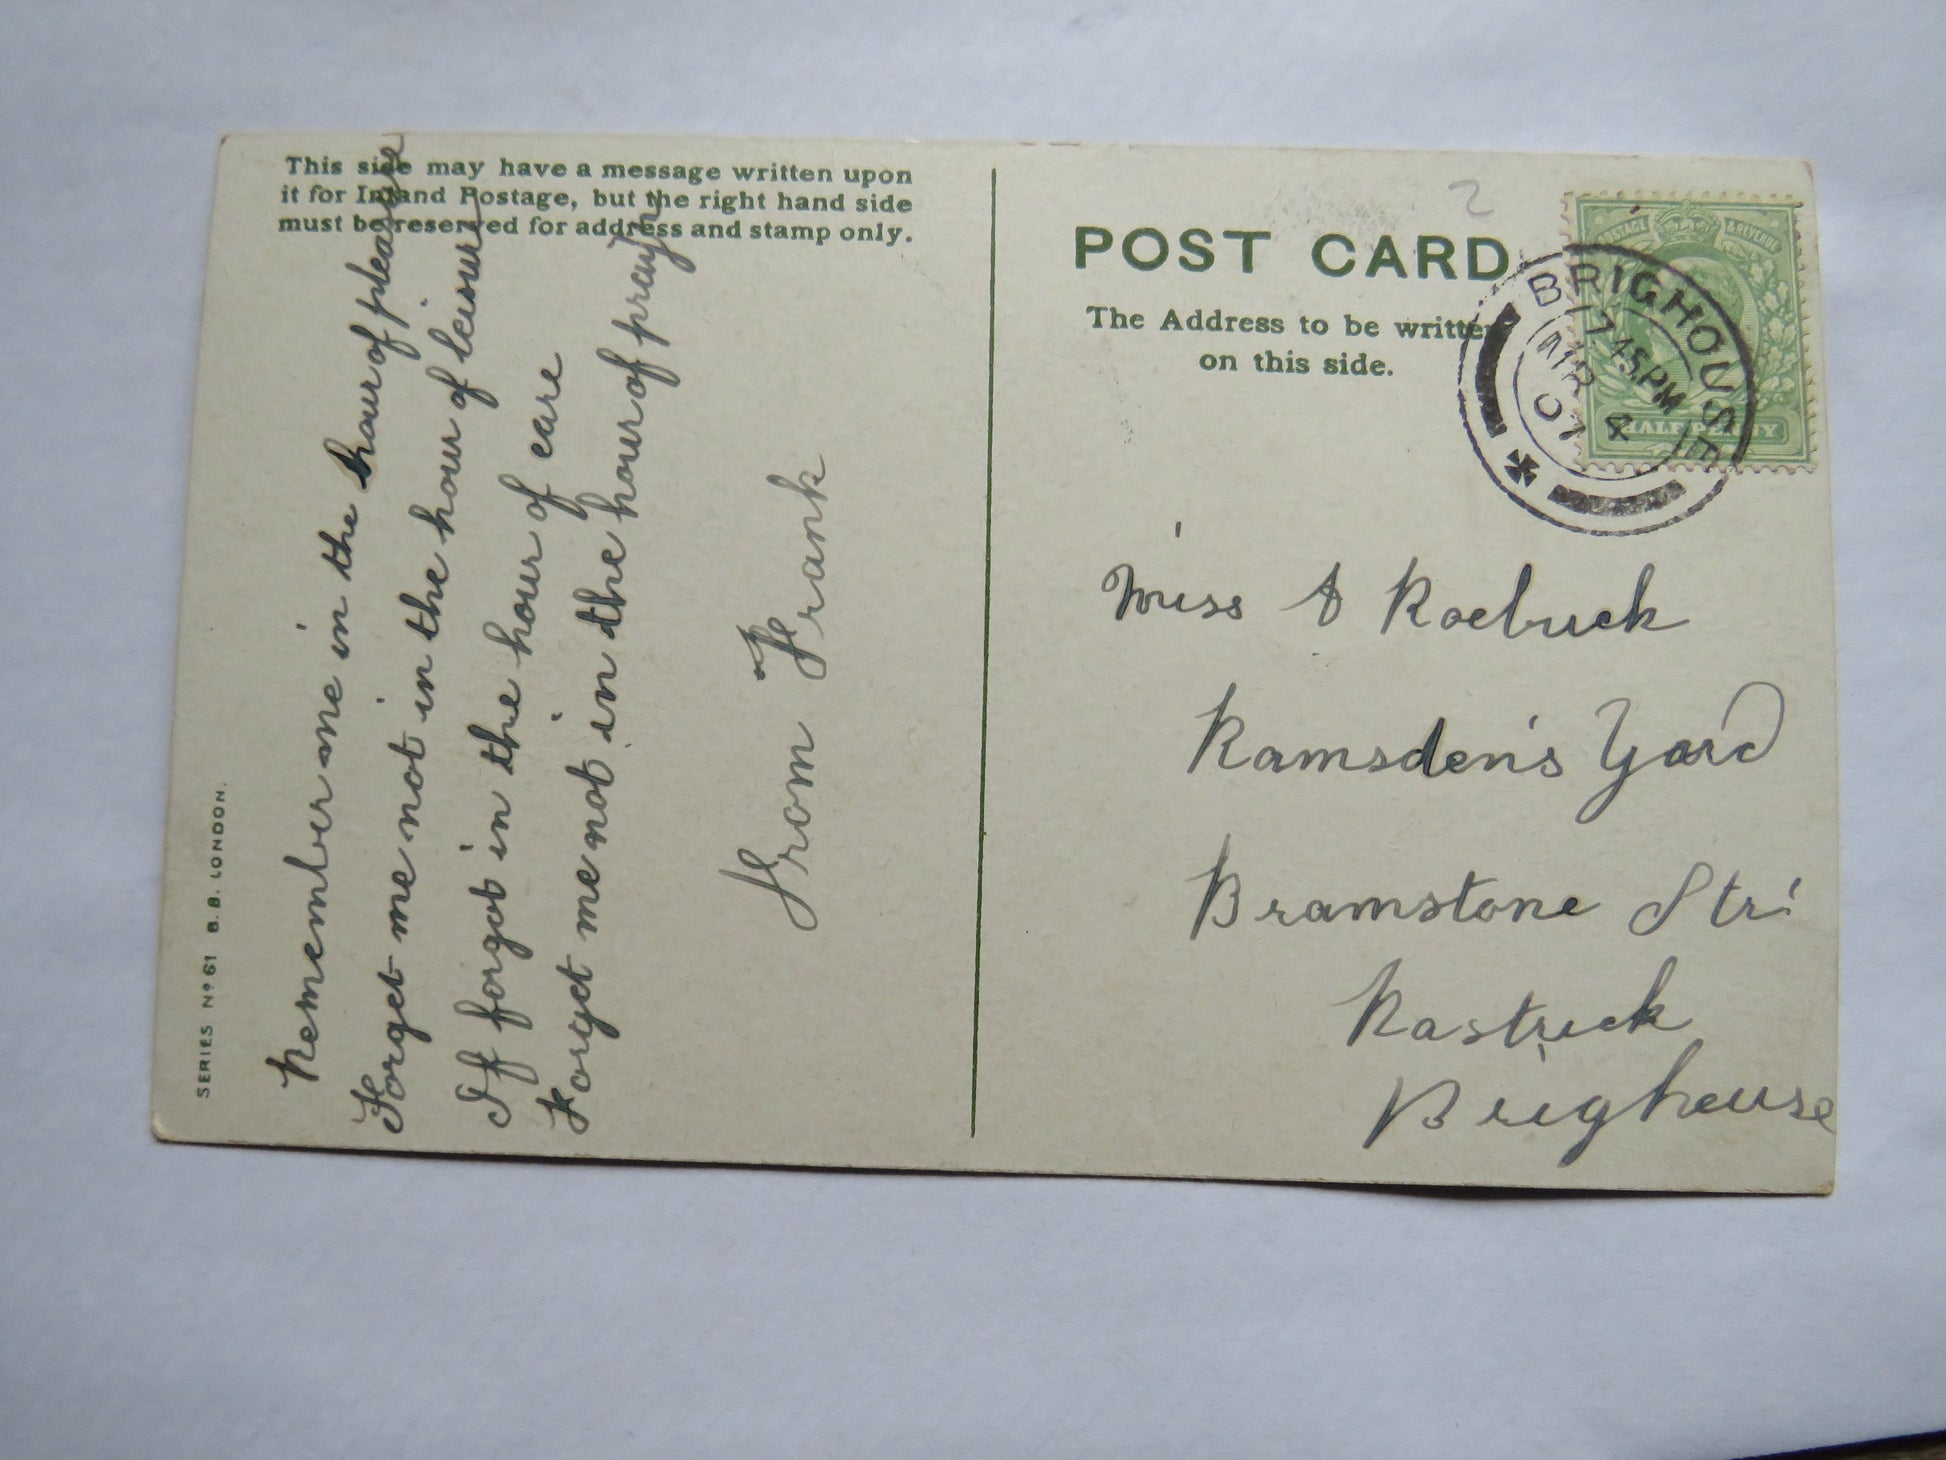 This side may have a message written upon
it for Inland Postage, but the right hand side
must be reserved for address and stamp only.
SERIES Nº 61 B. B. LONDON.
Remember me in the hour of pleasure
Forget me not in the hour of leisure
If forgot in the hour of care
Forget me not in the hour of prayr
From Frank
2
POST CARD
The Address to be written
on this side.
POSTAGE & REVENUE
HALF PENNY
BRIGHOUSE
7 15 PM
AP 4
07
Miss A Roebuck
Ramsden's Yard
Bramstone Str
Rastrick
Brighouse